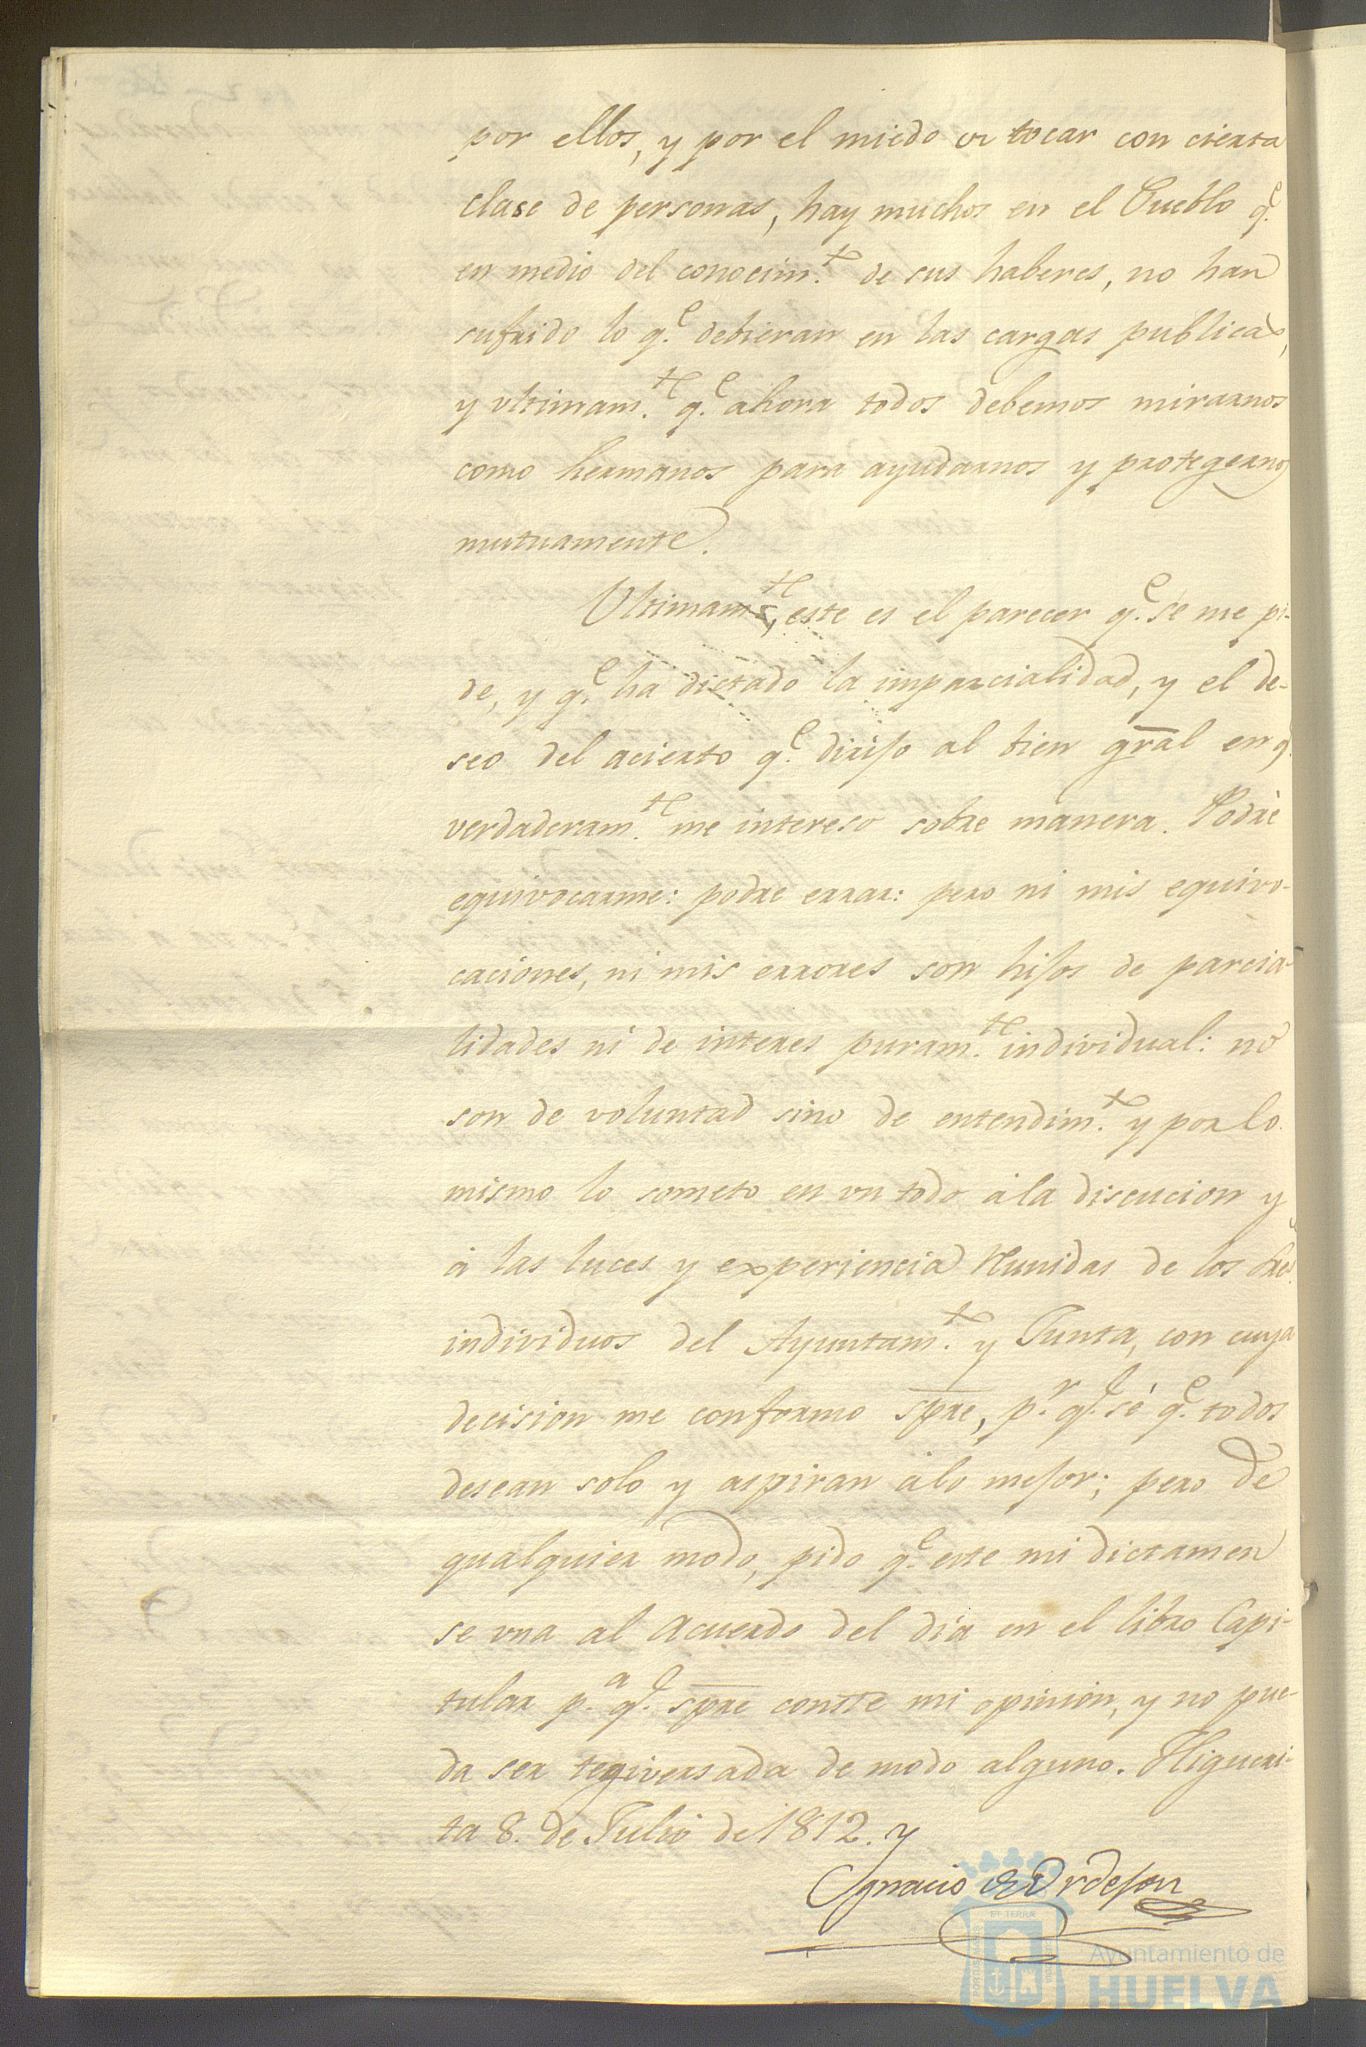 por ellos, y por el miedo de tocar con cierta
clase de personas, hay muchos en el Pueblo q.e
en medio del conocim.to de sus haberes, no han
sufrido lo q.e debieran en las cargas publicas,
y ultimam.te q.e ahora todos debemos mirarnos
como hermanos para ayudarnos y protegernos
mutuamente.
Ultimam.te, este es el parecer q.e se me pi-
de, y q.e ha dictado la imparcialidad, y el de-
seo del acierto q.e dirijo al bien gral en q.e
verdaderam.te me intereso sobre manera. Podrè
equivocarme: podre errar: pero ni mis equivo-
caciones, ni mis errores son hijos de parcia-
lidades ni de interes puram.te individual: no
son de voluntad sino de entendim.to y por lo
mismo lo someto en un todo à la discucion y
à las luces y experiencia reunidas de los Sres.
individuos del Ayuntam.to y Junta, con cuya
decision me conformo spre, p.r q.e sé q.e todos
desean solo y aspiran à lo mejor; pero de
qualquier modo, pido q.e este mi dictamen
se una al Acuerdo del dia en el libro Capi-
tular p.a q.e spre conste mi opinion, y no pue-
da ser tegiversada de modo alguno. Higueri-
ta 8. de Julio de 1812. y
Ignacio de Ordejon
Ayuntamiento de
HUELVA